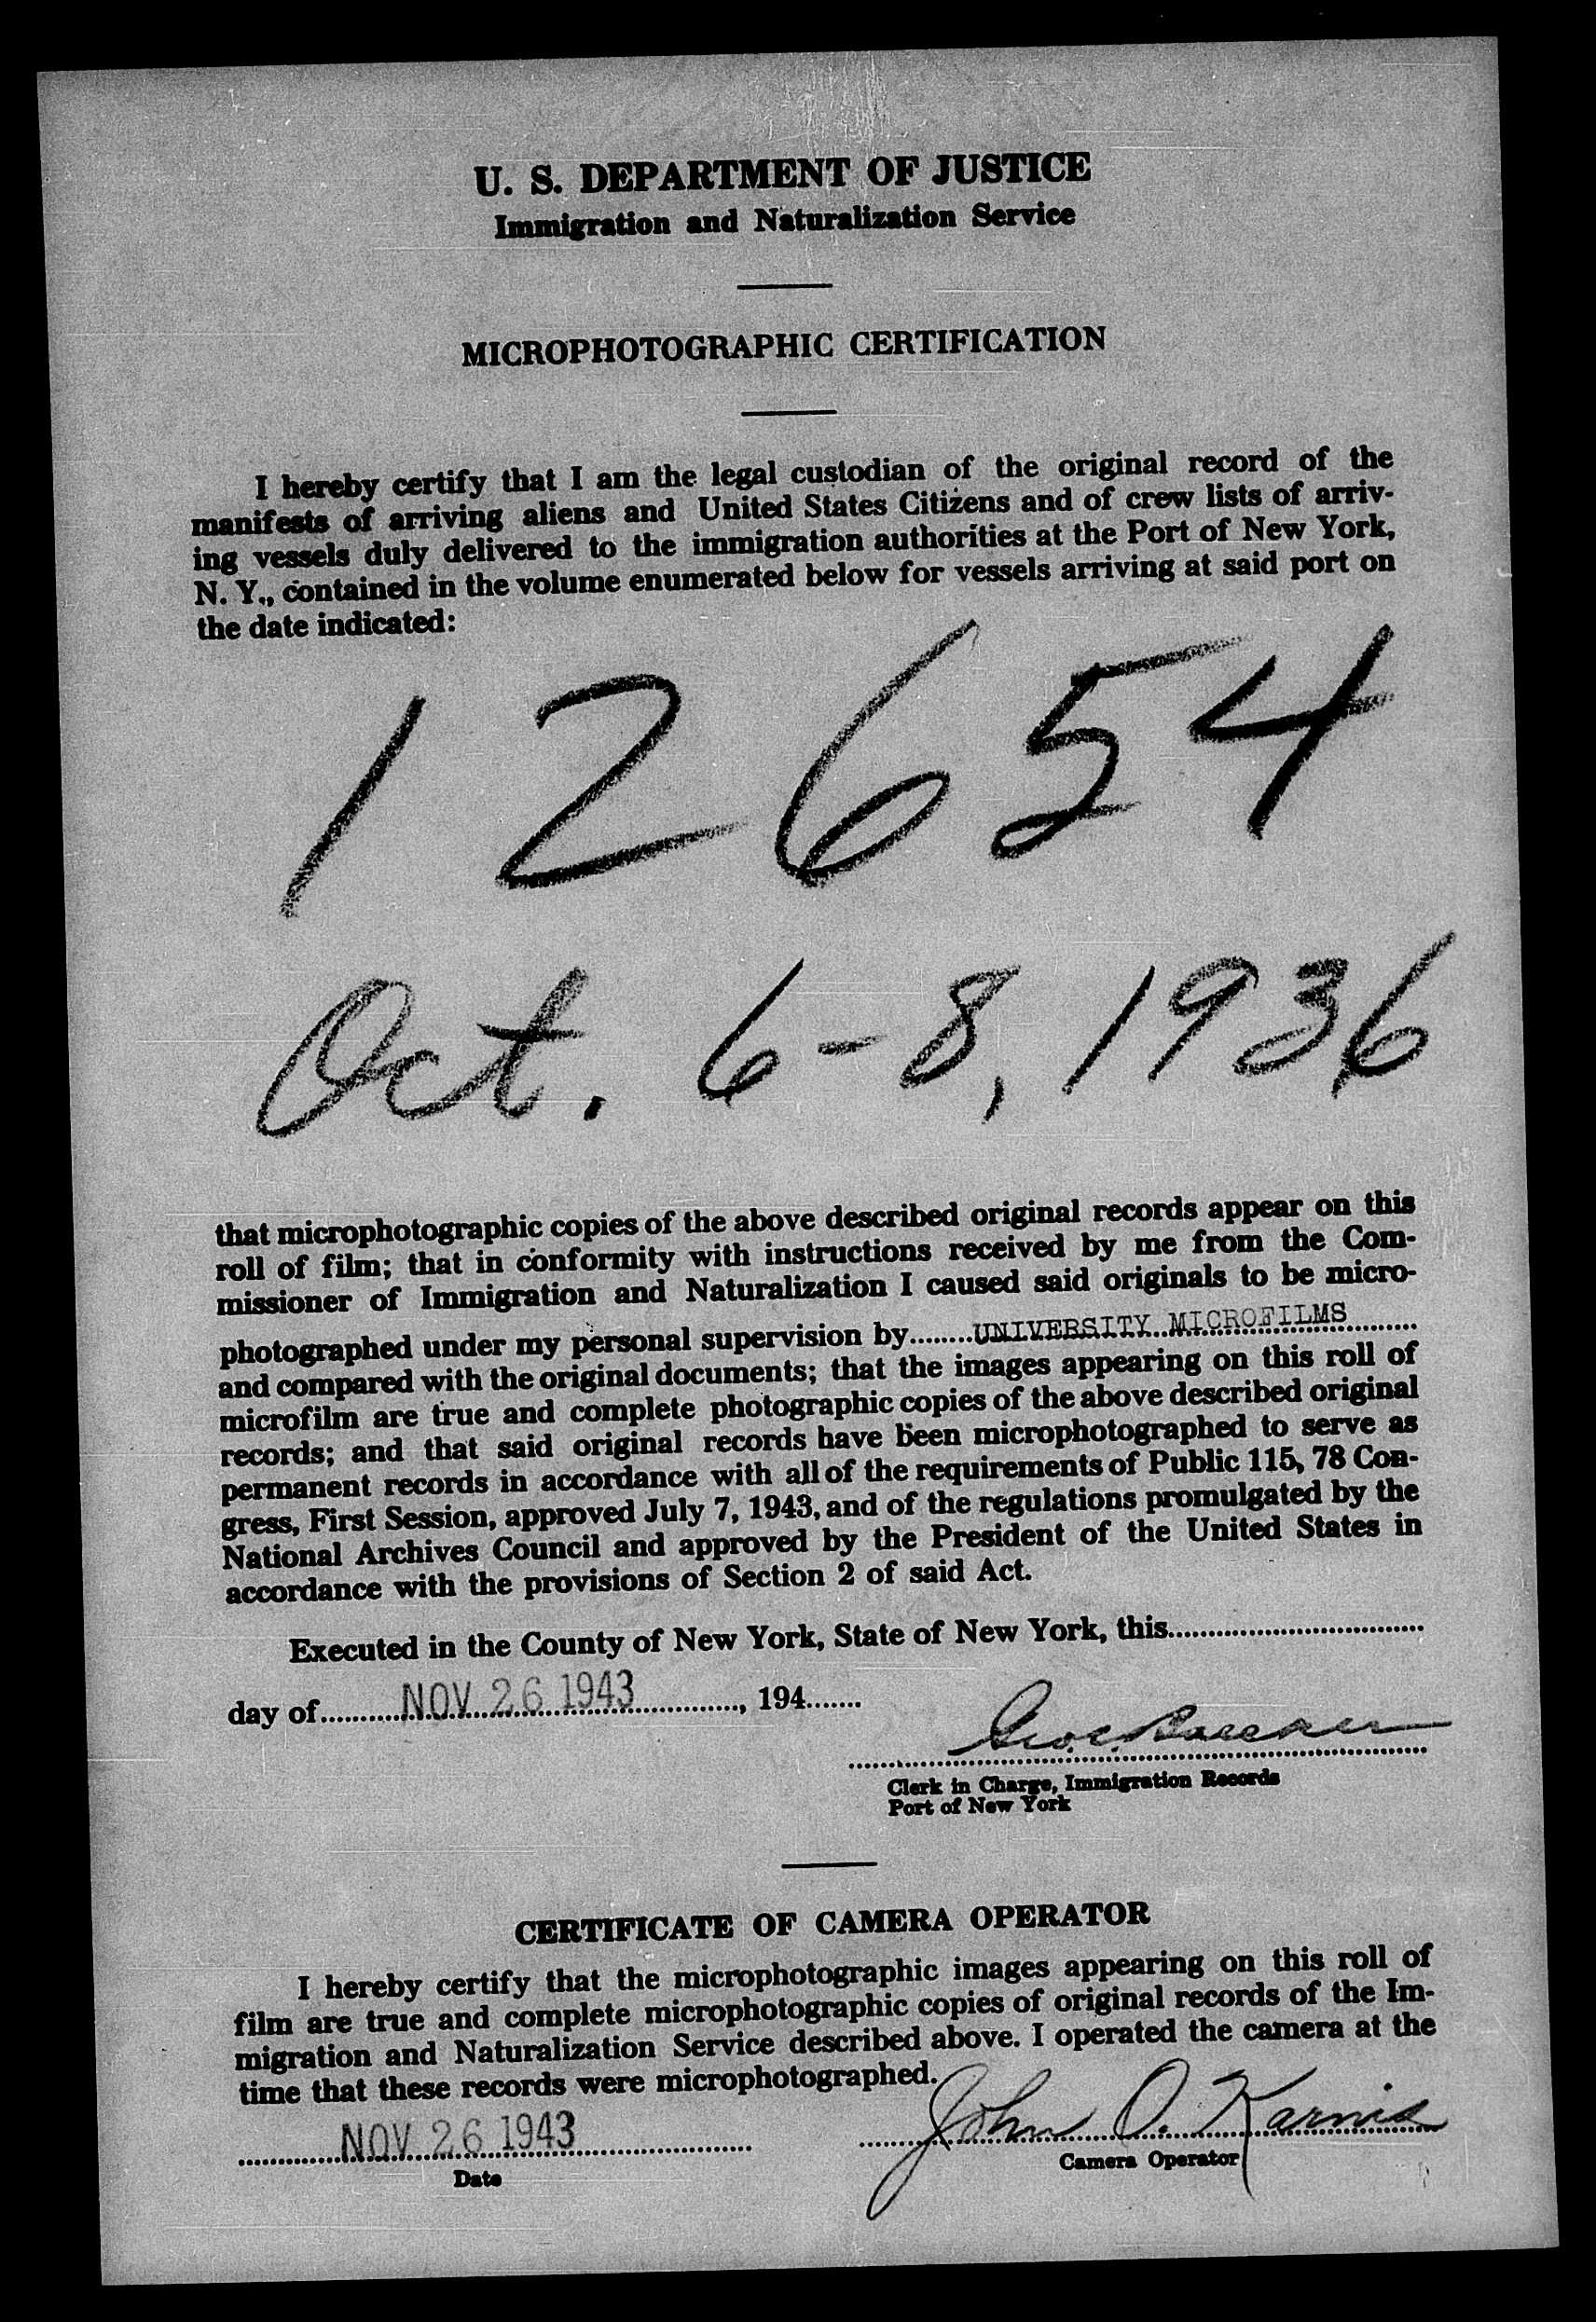 U. S. DEPARTMENT OF JUSTICE
Immigration and Naturalization Service
MICROPHOTOGRAPHIC CERTIFICATION
I hereby certify that I am the legal custodian of the original record of the
manifests of arriving aliens and United States Citizens and of crew lists of arriv-
ing vessels duly delivered to the immigration authorities at the Port of New York,
N. Y., contained in the volume enumerated below for vessels arriving at said port on
the date indicated:
12654
Oct. 6-8, 1936
that microphotographic copies of the above described original records appear on this
roll of film; that in conformity with instructions received by me from the Com-
missioner of Immigration and Naturalization I caused said originals to be micro-
photographed under my personal supervision by........UNIVERSITY MICROFILMS
and compared with the original documents; that the images appearing on this roll of
microfilm are true and complete photographic copies of the above described original
records; and that said original records have been microphotographed to serve as
permanent records in accordance with all of the requirements of Public 115, 78 Con-
gress, First Session, approved July 7, 1943, and of the regulations promulgated by the
National Archives Council and approved by the President of the United States in
accordance with the provisions of Section 2 of said Act.
Executed in the County of New York, State of New York, this................................
day of..........NOV 26 1943.............., 194.......
Geo. C.
Clerk in Charge, Immigration Records
Port of New York
CERTIFICATE OF CAMERA OPERATOR
I hereby certify that the microphotographic images appearing on this roll of
film are true and complete microphotographic copies of original records of the Im-
migration and Naturalization Service described above. I operated the camera at the
time that these records were microphotographed.
NOV 26 1943 John O. Karnis
Date Camera Operator